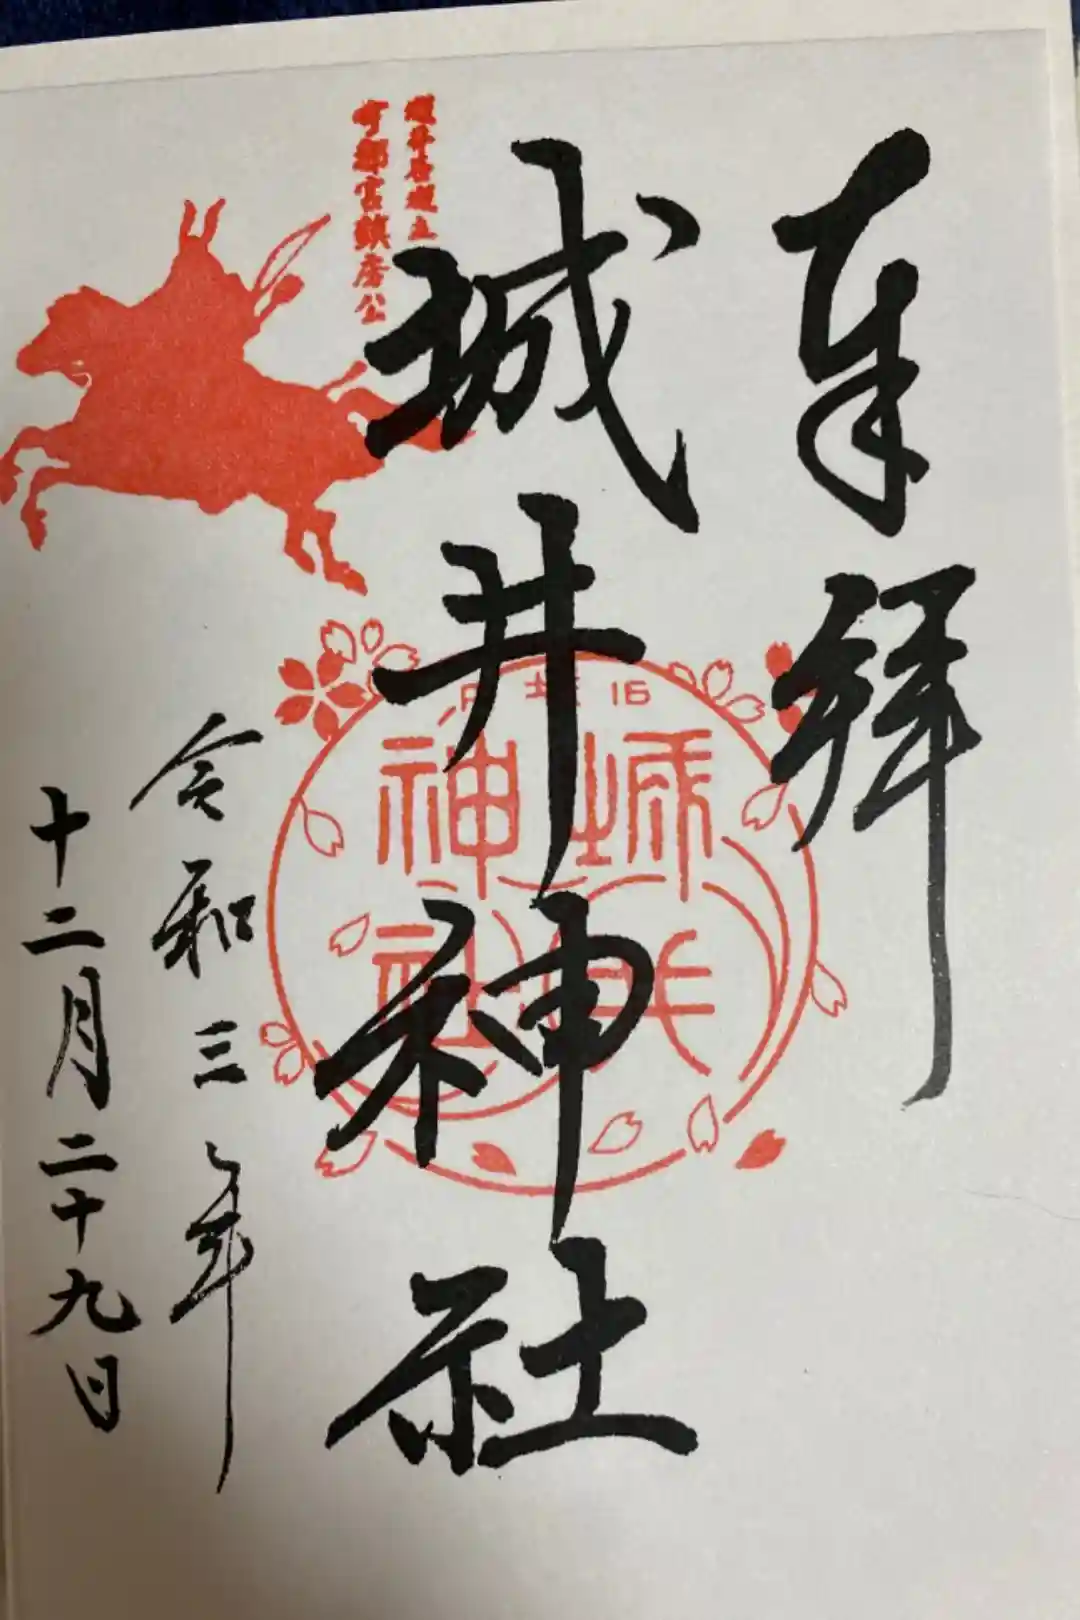 奉拝
城井神社
宇都宮鎮房公
城井
神社
令和三年
十二月二十九日